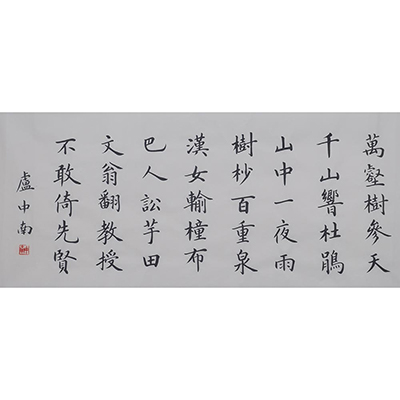 萬壑樹參天
千山響杜鵑
山中一夜雨
樹杪百重泉
漢女輸橦布
巴人訟芋田
文翁翻教授
不敢倚先賢
盧中南